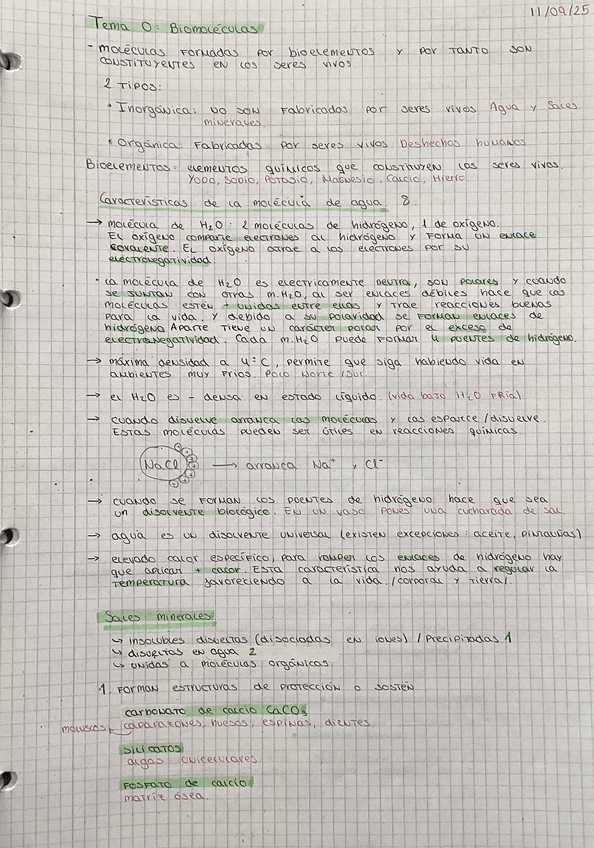 11/09/25
Tema 0: Biomoléculas
- moléculas formadas por bioelementos y por tanto son
constituyentes en los seres vivos.
2 tipos:
· Inorgánica: no son fabricadas por seres vivos. Agua y sales
minerales.
· Orgánica: Fabricadas por seres vivos Deshechos humanos
Bioelementos: elementos químicos que constituyen los seres vivos.
Yodo, Sodio, Potasio, Magnesio, Calcio, Hierro
Características de la molécula de agua. 8.
→ molécula de H2O: 2 moléculas de hidrógeno, 1 de oxígeno.
El oxígeno comparte electrones al hidrógeno y forma un enlace
covalente. El oxígeno atrae a los electrones por su
electronegatividad.
· La molécula de H2O es electricamente neutra, son polares y cuando
se juntan con otras m.H2O, al ser enlaces débiles hace que las
moléculas estén + unidas entre ellas y trae reacciones buenas
para la vida, y debido a su polaridad se forman enlaces de
hidrógeno. Aparte tiene un carácter polar por el exceso de
electronegatividad. Cada m.H2O puede formar 4 puentes de hidrógeno.
→ máxima densidad a 4°C, permite que siga habiendo vida en
ambientes muy fríos. Polo Norte/Sur
→ el H2O es - densa en estado líquido. (vida bajo H2O fría)
→ cuando disuelve arranca las moléculas y las esparce/disuelve.
Estas moléculas pueden ser útiles en reacciones químicas
NaCl → arranca Na+ y Cl-
→ cuando se forman los puentes de hidrógeno hace que sea
un disolvente biológico. En un vaso pones una cucharada de sal
→ agua es un disolvente universal (existen excepciones: aceite, pinturas)
→ elevado calor específico, para romper los enlaces de hidrógeno hay
que aplicar + calor. Esta característica nos ayuda a regular la
temperatura favoreciendo a la vida. (corporal y tierra).
Sales minerales
↳ insolubles disueltas (disociadas en iones) / Precipitadas 1
↳ disueltas en agua 2
↳ unidas a moléculas orgánicas
1. Forman estructuras de protección o sostén
carbonato de calcio CaCO3
moluscos caparazones, huesos, espinas, dientes.
silicatos
algas unicelulares
Fosfato de calcio
matriz ósea.